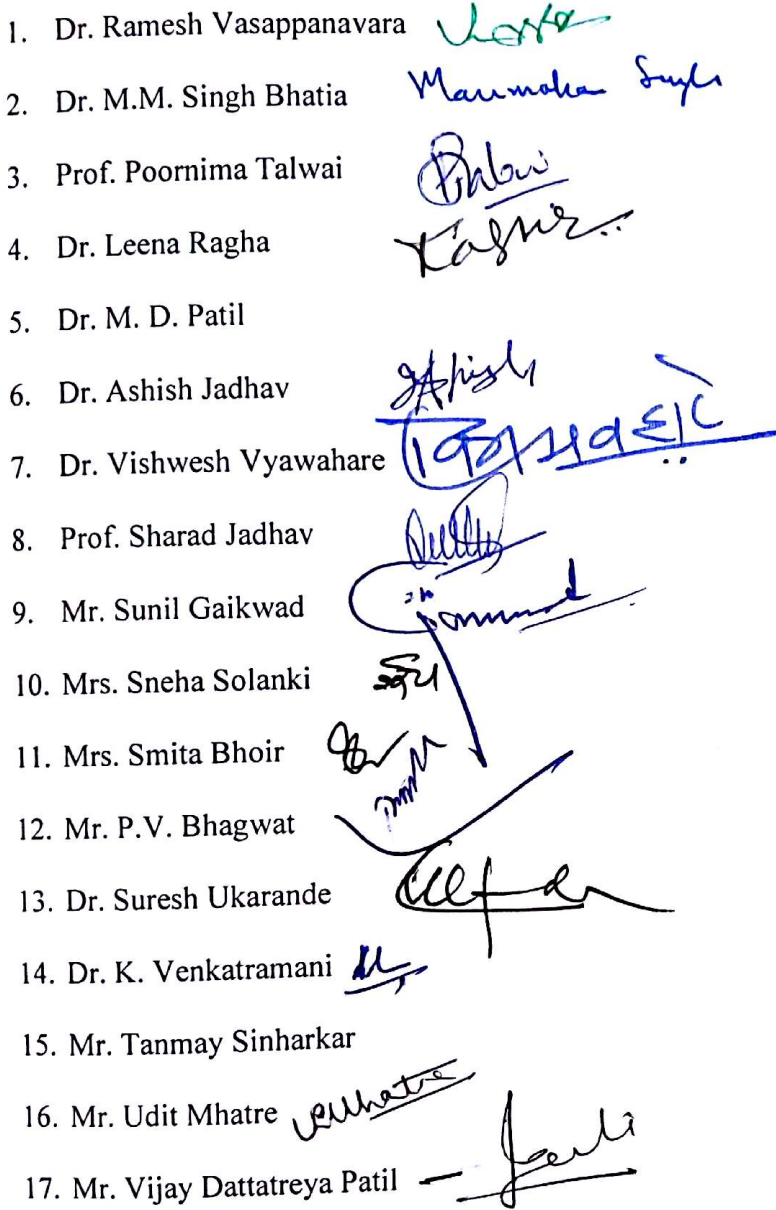 1. Dr. Ramesh Vasappanavara
2. Dr. M.M. Singh Bhatia Manmohan Singh
3. Prof. Poornima Talwai
4. Dr. Leena Ragha
5. Dr. M. D. Patil
6. Dr. Ashish Jadhav
7. Dr. Vishwesh Vyawahare
8. Prof. Sharad Jadhav
9. Mr. Sunil Gaikwad
10. Mrs. Sneha Solanki
11. Mrs. Smita Bhoir
12. Mr. P.V. Bhagwat
13. Dr. Suresh Ukarande
14. Dr. K. Venkatramani
15. Mr. Tanmay Sinharkar
16. Mr. Udit Mhatre
17. Mr. Vijay Dattatreya Patil –